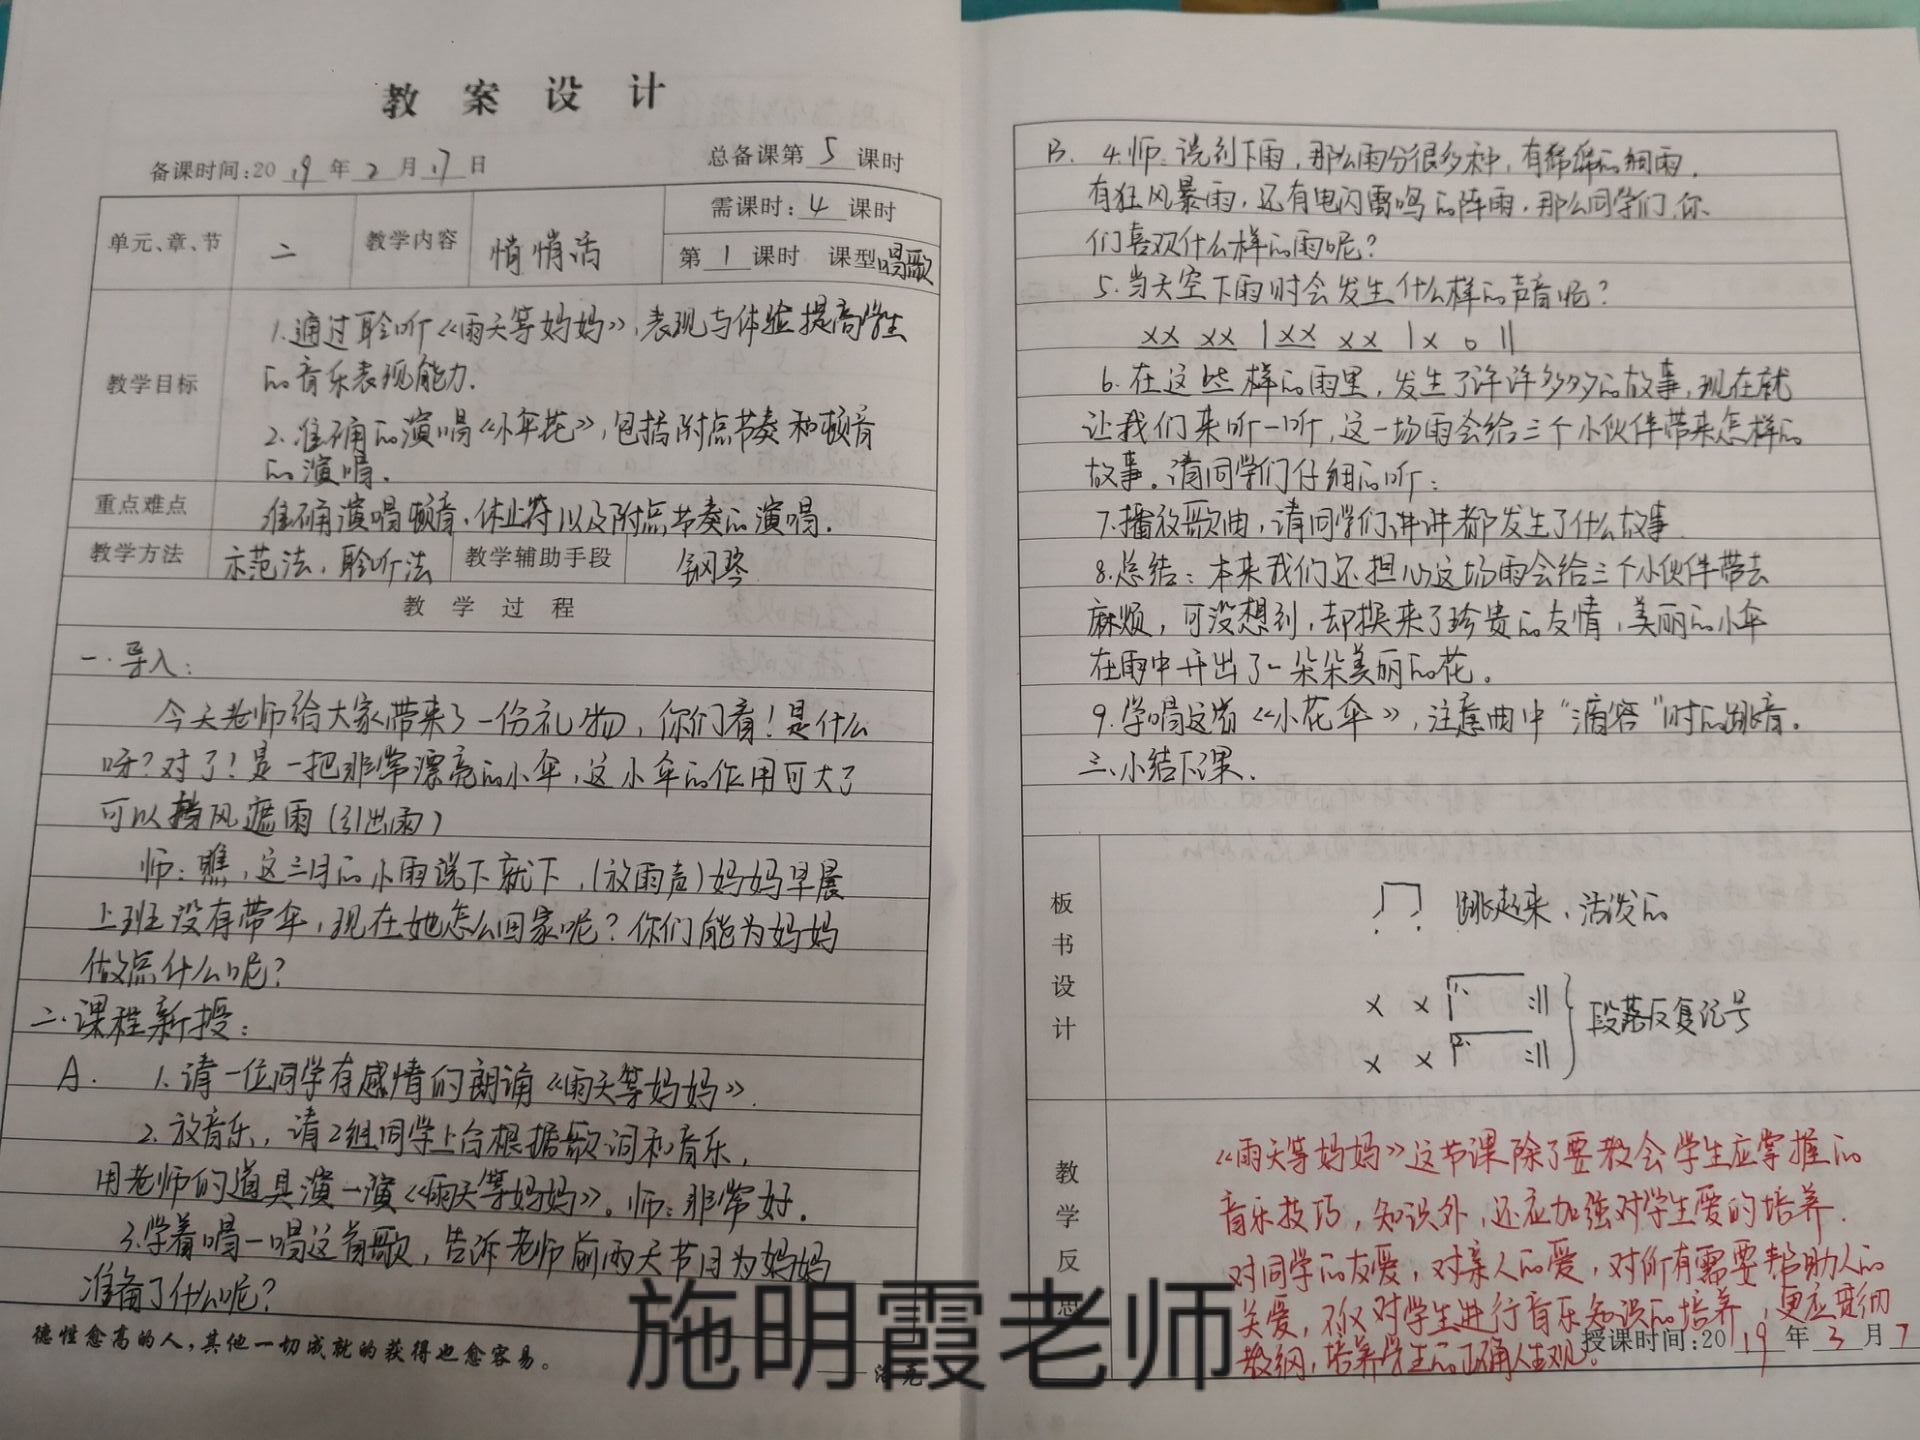 教案设计
备课时间:2019年2月17日 总备课第5课时
单元、章、节 二 教学内容 悄悄话 需课时:4课时
第1课时 课型 唱歌
教学目标
1.通过聆听《雨天等妈妈》,表现与体验提高学生
的音乐表现能力.
2.准确的演唱《小伞花》,包括附点节奏和顿音
的演唱.
重点难点 准确演唱顿音、休止符以及附点节奏的演唱.
教学方法 示范法、聆听法 教学辅助手段 钢琴
教学过程
一.导入:
今天老师给大家带来了一份礼物,你们看!是什么
呀?对了!是一把非常漂亮的小伞,这小伞的作用可大了
可以挡风遮雨(引出雨)
师:瞧,这三月的小雨说下就下,(放雨声)妈妈早晨
上班没有带伞,现在她怎么回家呢?你们能为妈妈
做点什么呢?
二.课程新授:
A. 1.请一位同学有感情的朗诵《雨天等妈妈》.
2.放音乐,请2组同学上台根据歌词和音乐,
用老师的道具演一演《雨天等妈妈》。师:非常好.
3.学着唱一唱这首歌,告诉老师前两天节目为妈妈
准备了什么呢?
德性愈高的人,其他一切成就的获得也愈容易。
B. 4.师:说到下雨,那么雨分很多种,有绵绵的细雨.
有狂风暴雨,还有电闪雷鸣的阵雨,那么同学们,你
们喜欢什么样的雨呢?
5.当天空下雨时会发生什么样的声音呢?
xx xx | xx xx | x 0 ||
6.在这些样的雨里,发生了许许多多的故事,现在就
让我们来听一听,这一场雨会给三个小伙伴带来怎样的
故事。请同学们仔细的听:
7.播放歌曲,请同学们讲讲都发生了什么故事
8.总结:本来我们还担心这场雨会给三个小伙伴带去
麻烦,可没想到,却换来了珍贵的友情,美丽的小伞
在雨中开出了一朵朵美丽的花。
9.学唱这首《小花伞》,注意曲中“滴答”时的跳音。
三、小结下课.
板书设计
跳起来、活泼的
x x :||
x x :||
段落反复记号
教学反思
《雨天等妈妈》这节课除了要教会学生应掌握的
音乐技巧,知识外,还应加强对学生爱的培养.
对同学的友爱,对亲人的爱,对所有需要帮助人的
关爱,不仅对学生进行音乐知识的培养,更应度纲
教纲,培养学生的正确人生观。
授课时间:2019年3月7
施明霞老师